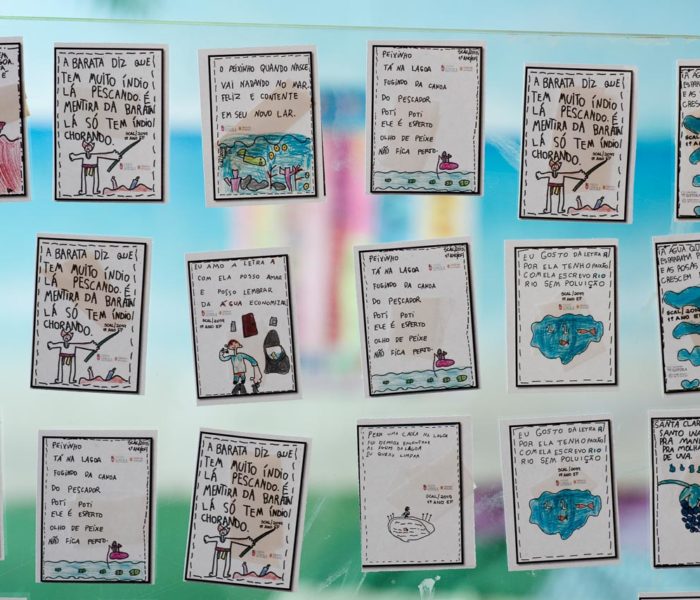 A BARATA DIZ QUE
TEM MUITO ÍNDIO
LÁ PESCANDO. É
MENTIRA DA BARATA
LÁ SÓ TEM ÍNDIO
CHORANDO.
SCAL/2019
1º ANO EF
O PEIXINHO QUANDO NASCE
VAI NADANDO NO MAR
FELIZ E CONTENTE
EM SEU NOVO LAR.
PEIXINHO
TÁ NA LAGOA
FUGINDO DA CANOA
DO PESCADOR
POTI POTI
ELE É ESPERTO
OLHO DE PEIXE
NÃO FICA PERTO.
A BARATA DIZ QUE
TEM MUITO ÍNDIO
LÁ PESCANDO. É
MENTIRA DA BARATA
LÁ SÓ TEM ÍNDIO
CHORANDO.
SCAL/2019
1º ANO EF
E AS
CRESC
A BARATA DIZ QUE
TEM MUITO ÍNDIO
LÁ PESCANDO. É
MENTIRA DA BARATA
LÁ SÓ TEM ÍNDIO
CHORANDO.
SCAL/2019
1º ANO EF
EU AMO A LETRA A
COM ELA POSSO AMAR
E POSSO LEMBRAR
DA ÁGUA ECONOMIZAR
SCAL/2019
1º ANO EF
PEIXINHO
TÁ NA LAGOA
FUGINDO DA CANOA
DO PESCADOR
POTI POTI
ELE É ESPERTO
OLHO DE PEIXE
NÃO FICA PERTO.
EU GOSTO DA LETRA R
POR ELA TENHO PAIXÃO
COM ELA ESCREVO RIO
RIO SEM POLUIÇÃO
SCAL/2019
1º ANO EF
E AS
CRESCEM
PEIXINHO
TÁ NA LAGOA
FUGINDO DA CANOA
DO PESCADOR
POTI POTI
ELE É ESPERTO
OLHO DE PEIXE
NÃO FICA PERTO.
A BARATA DIZ QUE
TEM MUITO ÍNDIO
LÁ PESCANDO. É
MENTIRA DA BARATA
LÁ SÓ TEM ÍNDIO
CHORANDO.
SCAL/2019
1º ANO EF
UMA CAIXA NA LAGOA
EU QUERO LIMPAR
SCAL/2019
1º ANO EF
EU GOSTO DA LETRA R
POR ELA TENHO PAIXÃO
COM ELA ESCREVO RIO
RIO SEM POLUIÇÃO
SCAL/2019
1º ANO EF
SANTA CLAR
SANTO
PRA
PRA MOLHA
DE UVA.